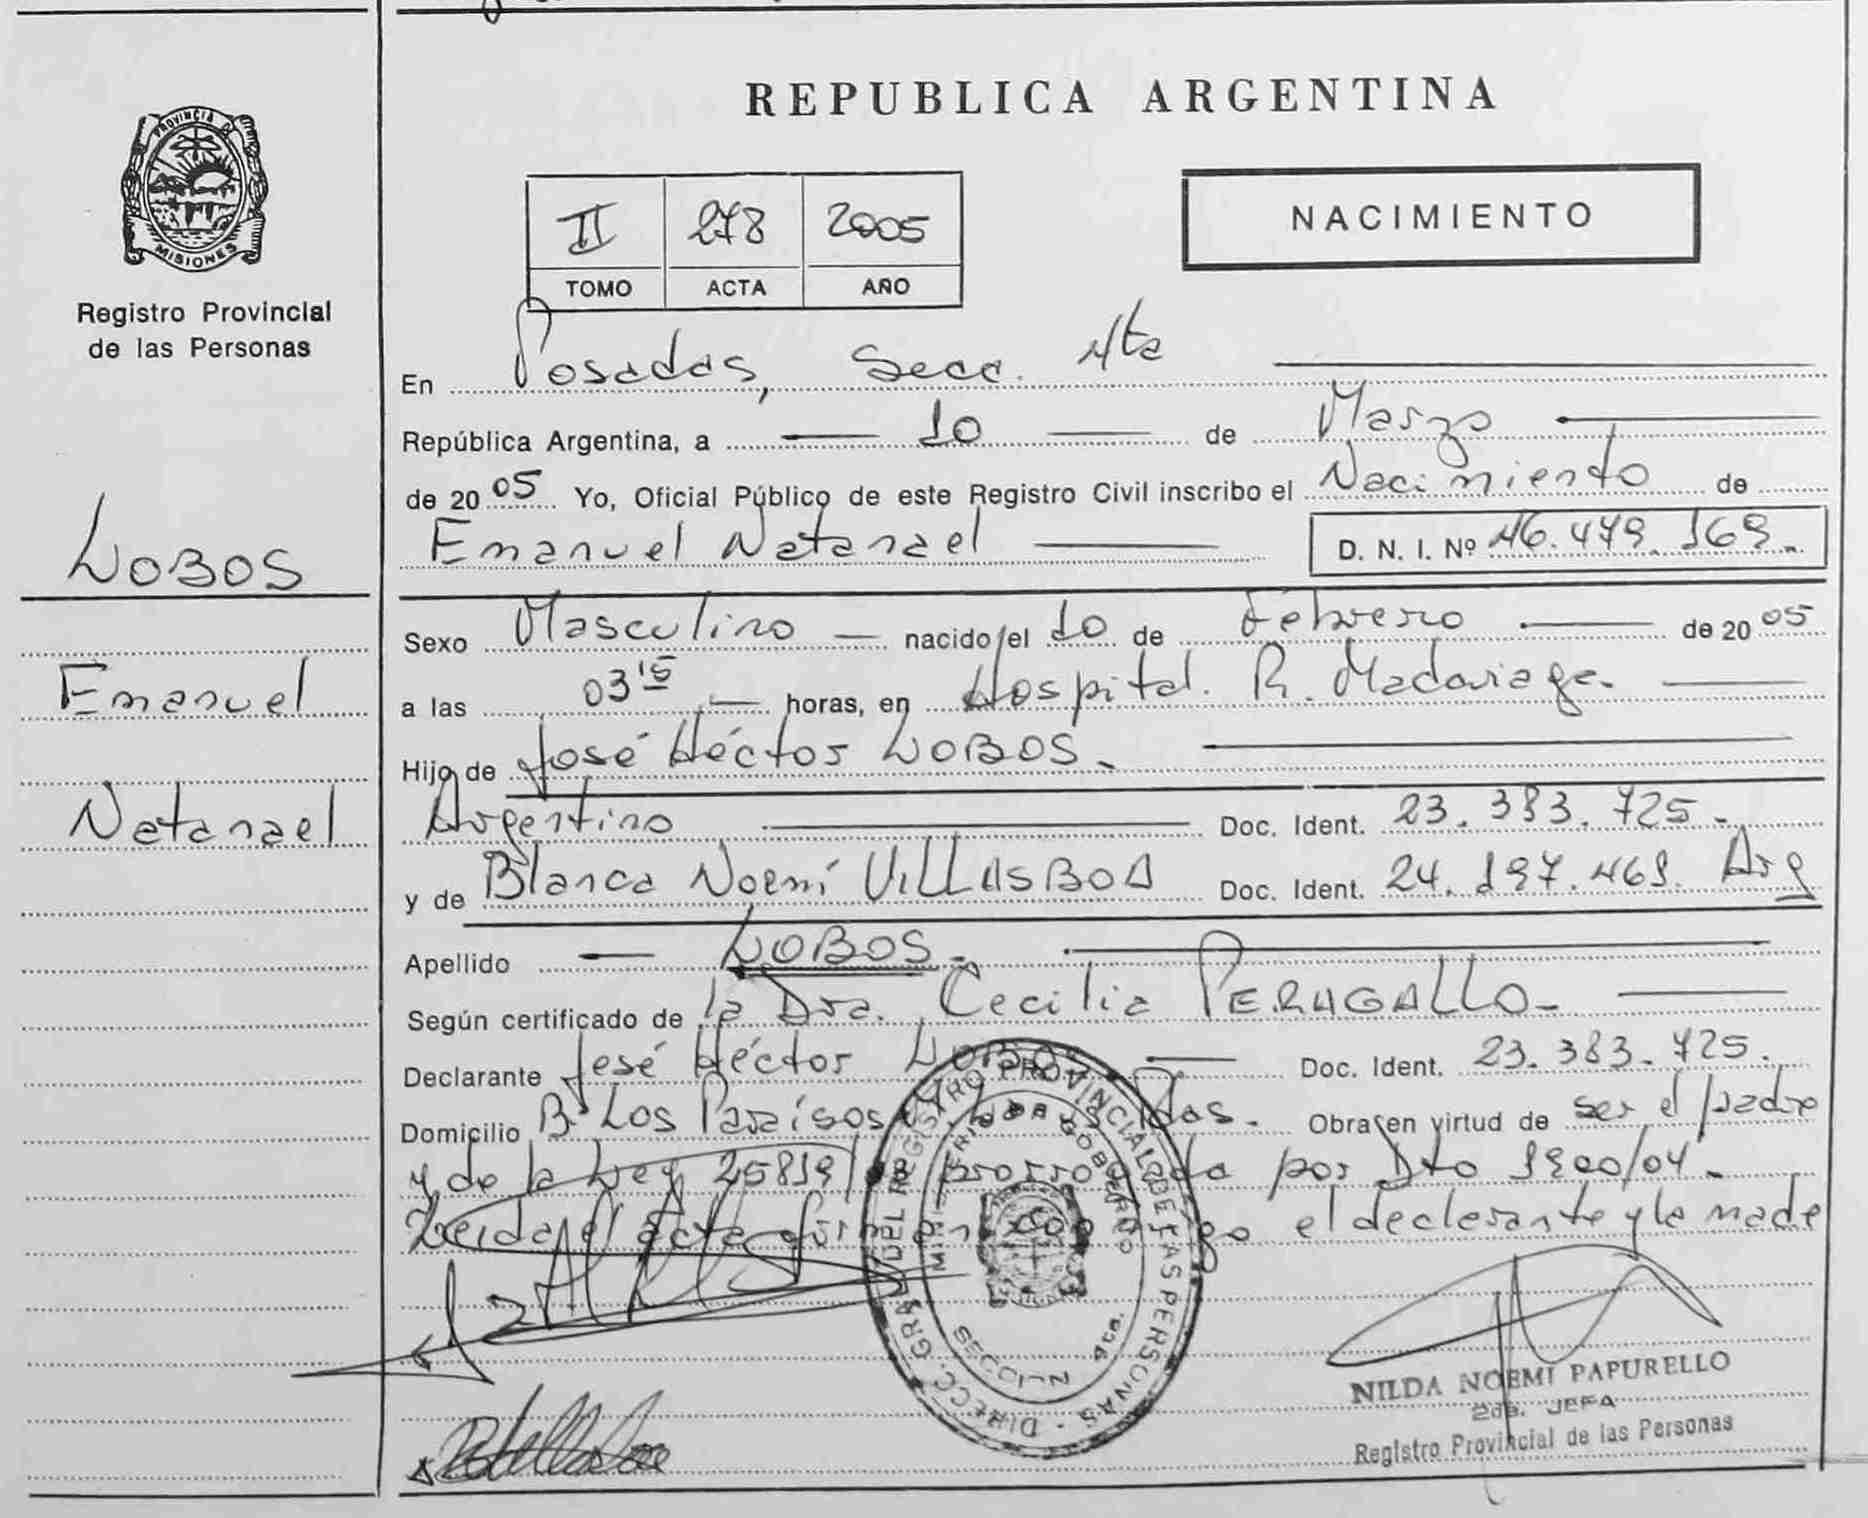 PROVINCIA DE
MISIONES
Registro Provincial
de las Personas
LOBOS
Emanuel
Natanael
REPUBLICA ARGENTINA
II 278 2005
TOMO ACTA AÑO
NACIMIENTO
En Posadas, Secc. 4ta
República Argentina, a 10 de Marzo
de 2005 Yo, Oficial Público de este Registro Civil inscribo el Nacimiento de
Emanuel Natanael D. N. I. Nº 46.479.169.
Sexo Masculino nacido el 10 de Febrero de 2005
a las 03 15 horas, en Hospital. R. Madariaga.
Hijo de José Héctor LOBOS.
Argentino Doc. Ident. 23.383.725.
y de Blanca Noemí VILLASBOA Doc. Ident. 24.197.469. Arg
Apellido LOBOS.
Según certificado de la Dra. Cecilia PERUGALLO.
Declarante José Héctor LOBOS Doc. Ident. 23.383.725.
Domicilio Bº Los Paraísos Pdas. Obra en virtud de ser el padre
y de la Ley 25819/03 prorrogada por Dto 1900/04.
Leida el acta firman conmigo el declarante y la madre
DIRECC. GRAL. DEL REGISTRO PROVINCIAL DE LAS PERSONAS
MINISTERIO DE GOBIERNO
SECCION 4ta.
NILDA NOEMI PAPURELLO
2da. JEFA
Registro Provincial de las Personas